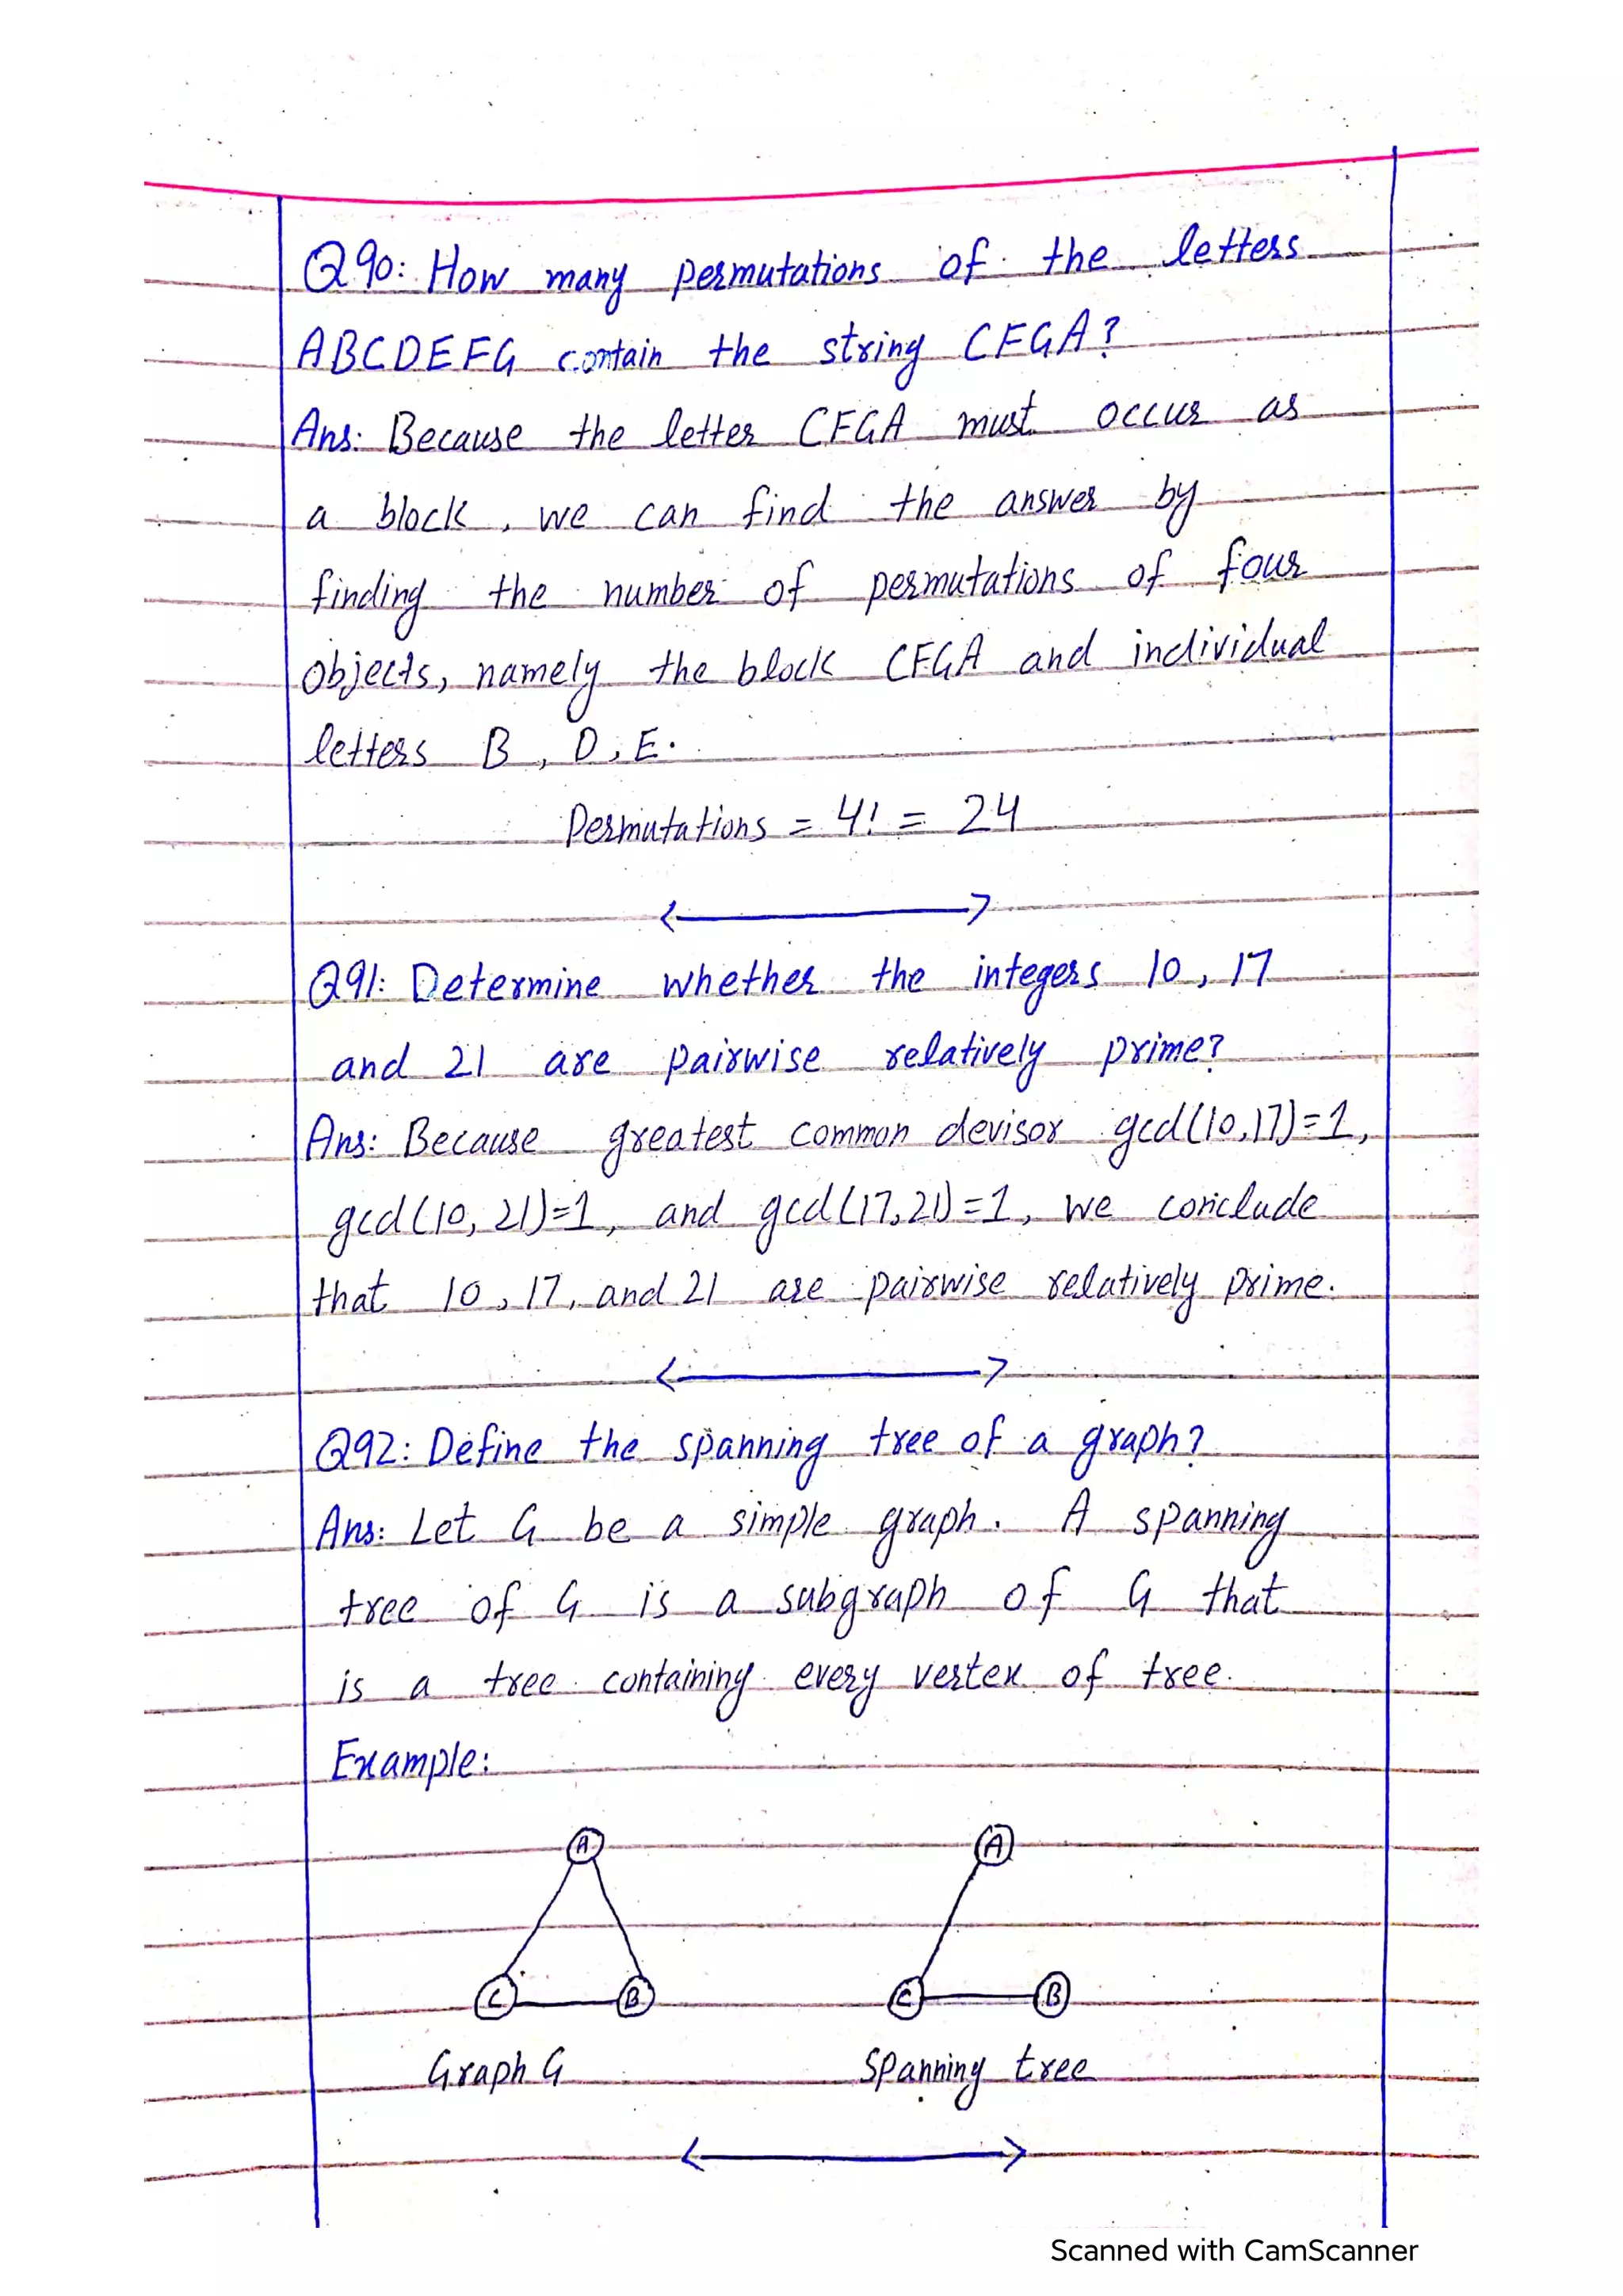 Q90: How many permutations of the letters
ABCDEFG contain the string CFGA?
Ans: Because the letter CFGA must occur as
a block, we can find the answer by
finding the number of permutations of four
objects, namely the block CFGA and individual
letters B, D, E.
Permutations = 4! = 24
Q91: Determine whether the integers 10, 17
and 21 are pairwise relatively prime?
Ans: Because greatest common devisor gcd(10,17)=1,
gcd(10, 21)=1, and gcd(17,21)=1, we conclude
that 10, 17, and 21 are pairwise relatively prime.
Q92: Define the spanning tree of a graph?
Ans: Let G be a simple graph. A spanning
tree of G is a subgraph of G that
is a tree containing every vertex of tree.
Example:
A A
C B C B
Graph G Spanning tree
Scanned with CamScanner